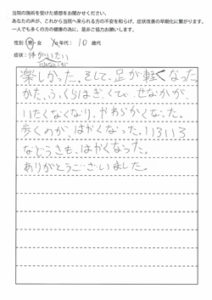 当院の施術を受けた感想をお聞かせください。
あなたの声が、これから当院へ来られる方の不安を和らげ、症状改善の早期化に繋がります。
一人でも多くの方の健康の為に、是非ご協力お願いします。
性別 男・女 年代: 10 歳代
症状: 体がいたい
楽しかった。そして、足が軽くなった
かた、ふくらはぎくて、せなかが
いたくなくなり、やわらかくなった。
歩くのが、はやくなった。いろいろ
などうさも、はやくなった。
ありがとうございました。